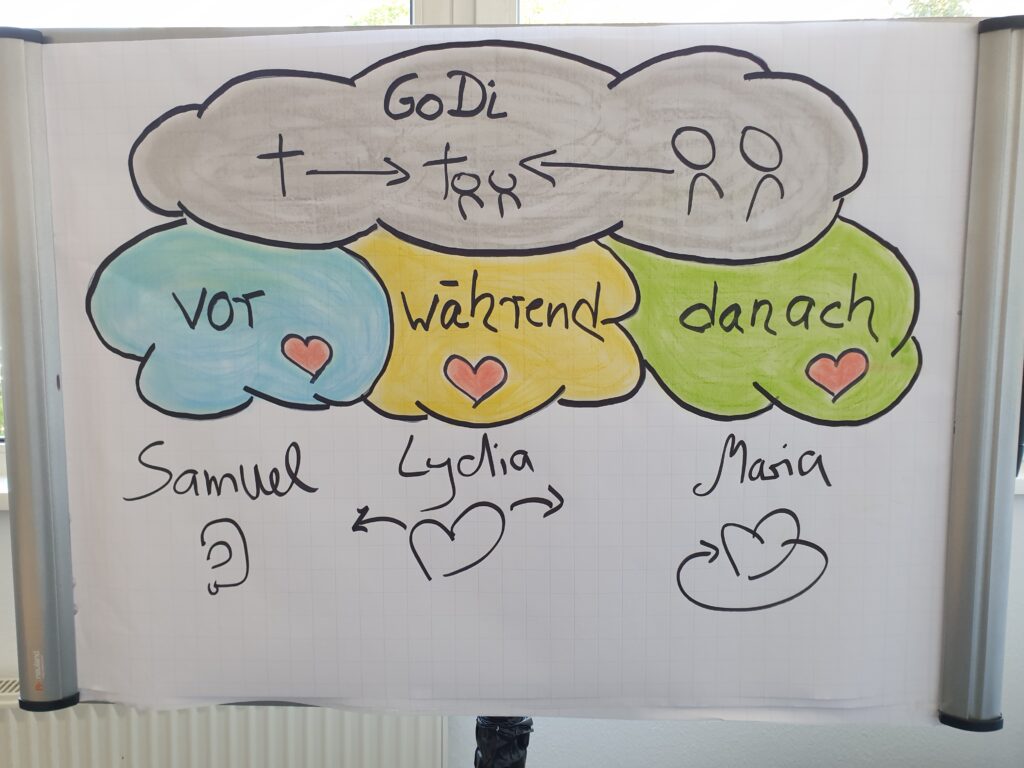 GoDi
vor während danach
Samuel Lydia Maria